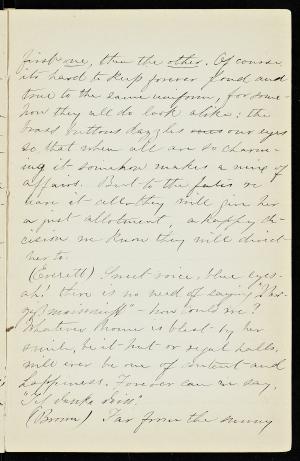 first one, then the other. Of course
its hard to keep forever fond and
true to the same uniform, for some-
how they all do look alike: the
brass buttons dazzle our eyes
so that when all are so charm-
ing it somehow makes a mix of
affairs. But to the fates we
leave it all they will give her
a just allotment, a happy de-
cision we know they will direct
her to.
(Everett) Sweet voice, blue eyes-
ah! there is no need of saying
"- how could we?
Whatever home is blest by her
smile, be it hut or regal halls,
will ever be one of content and
happiness. Forever can we say,
"Ich
(Brown) Far from the sunny